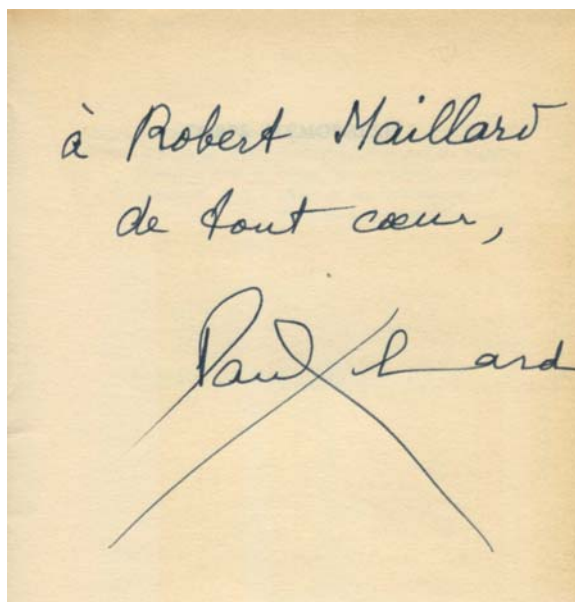 à Robert Maillard
de tout cœur,
Paul Éluard